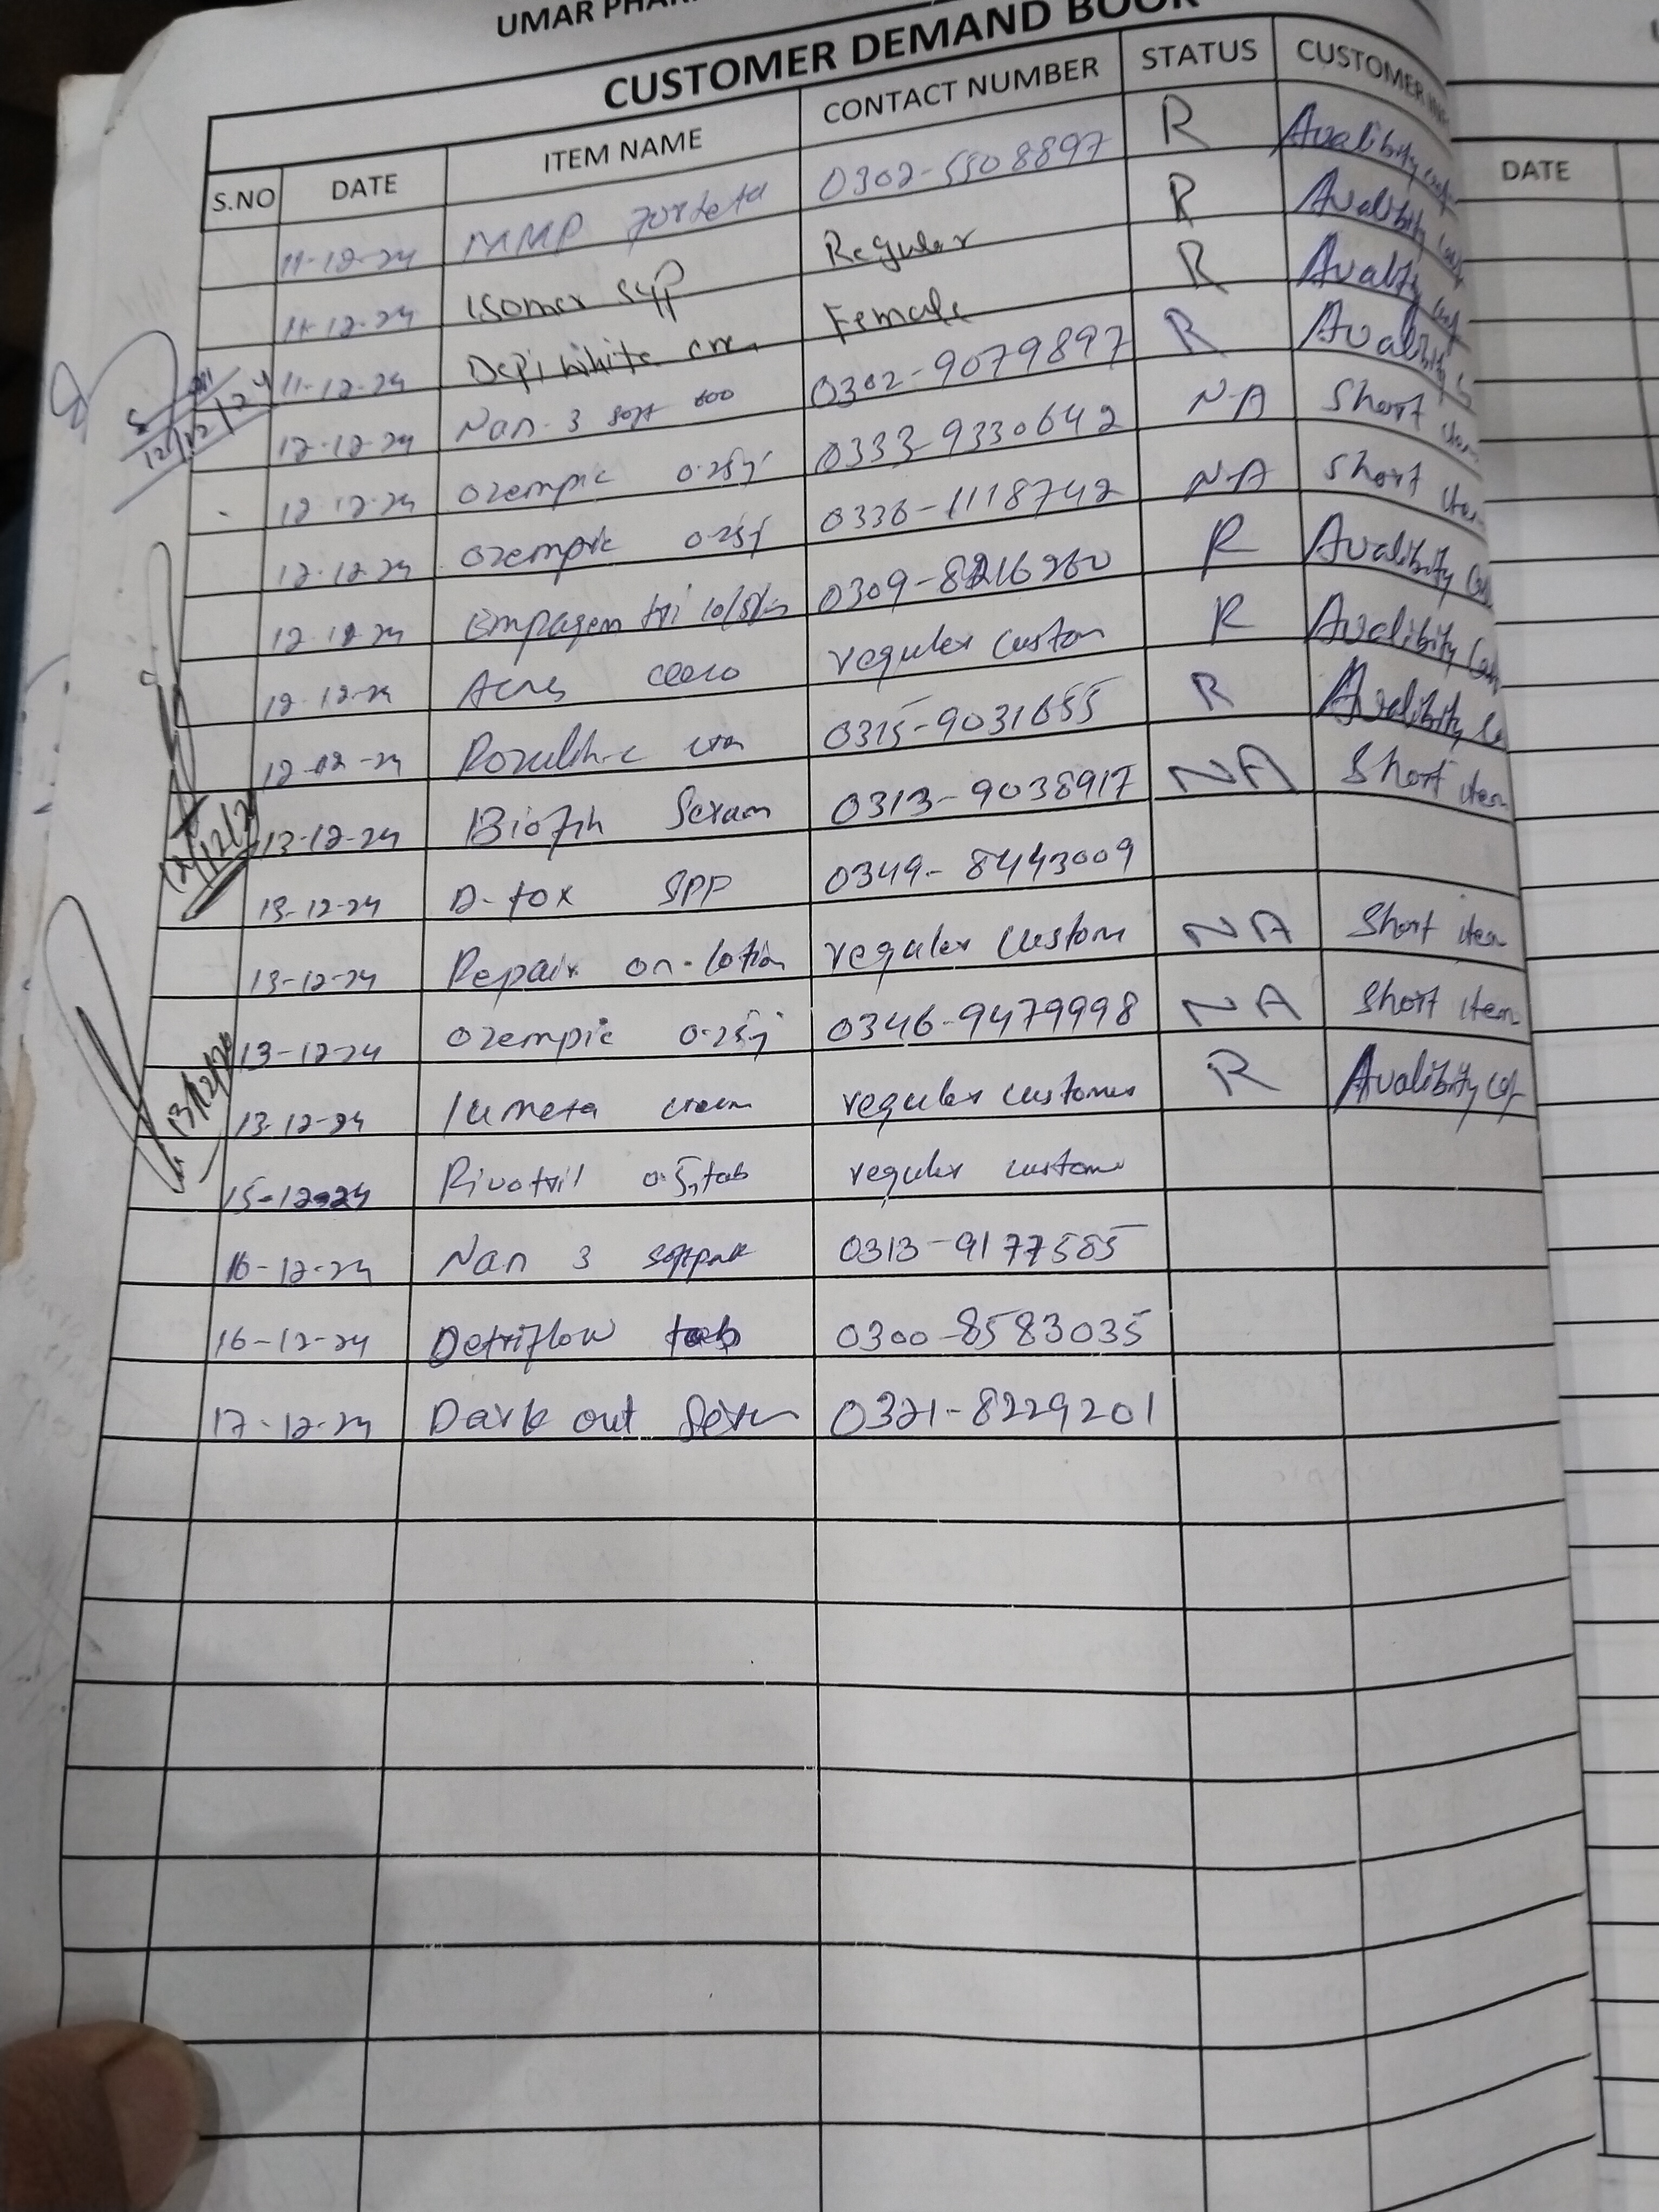 UMAR PHAR
CUSTOMER DEMAND BOOK
S.NO DATE ITEM NAME CONTACT NUMBER STATUS CUSTOMER
11-12-24 MMP 0302-5508897 R Avalibity
11-12-24 Isomer syp Regular R Avalibity
11-12-24 Depiwhite Female R Avality
12-12-24 Nan-3 soft 0302-9079897 R Avalibity
12-12-24 ozempic 0.25 0333-9330642 N-A Short item
12-12-24 ozempic 0.25 0336-1118742 N-A Short item
12-12-24 Empagem tri 0309-8216260 R Avalibity
12-12-24 Acnes regular custom R Avalibity
12-12-24 0315-9031655 R Avalibity
13-12-24 Seram 0313-9038917 NA Short item
13-12-24 D-tox SPP 0349-8443009
13-12-24 Repair on-lotion regular custome NA Short item
13-12-24 ozempic 0.25 0346-9479998 NA Short item
13-12-24 cream regular customer R Avalibity
15-12-24 Rivotril 0.5 tab regular custome
16-12-24 Nan 3 softpak 0313-9177585
16-12-24 Detriflow tab 0300-8583035
17-12-24 Dark out 0321-8229201
12/12/24
DATE